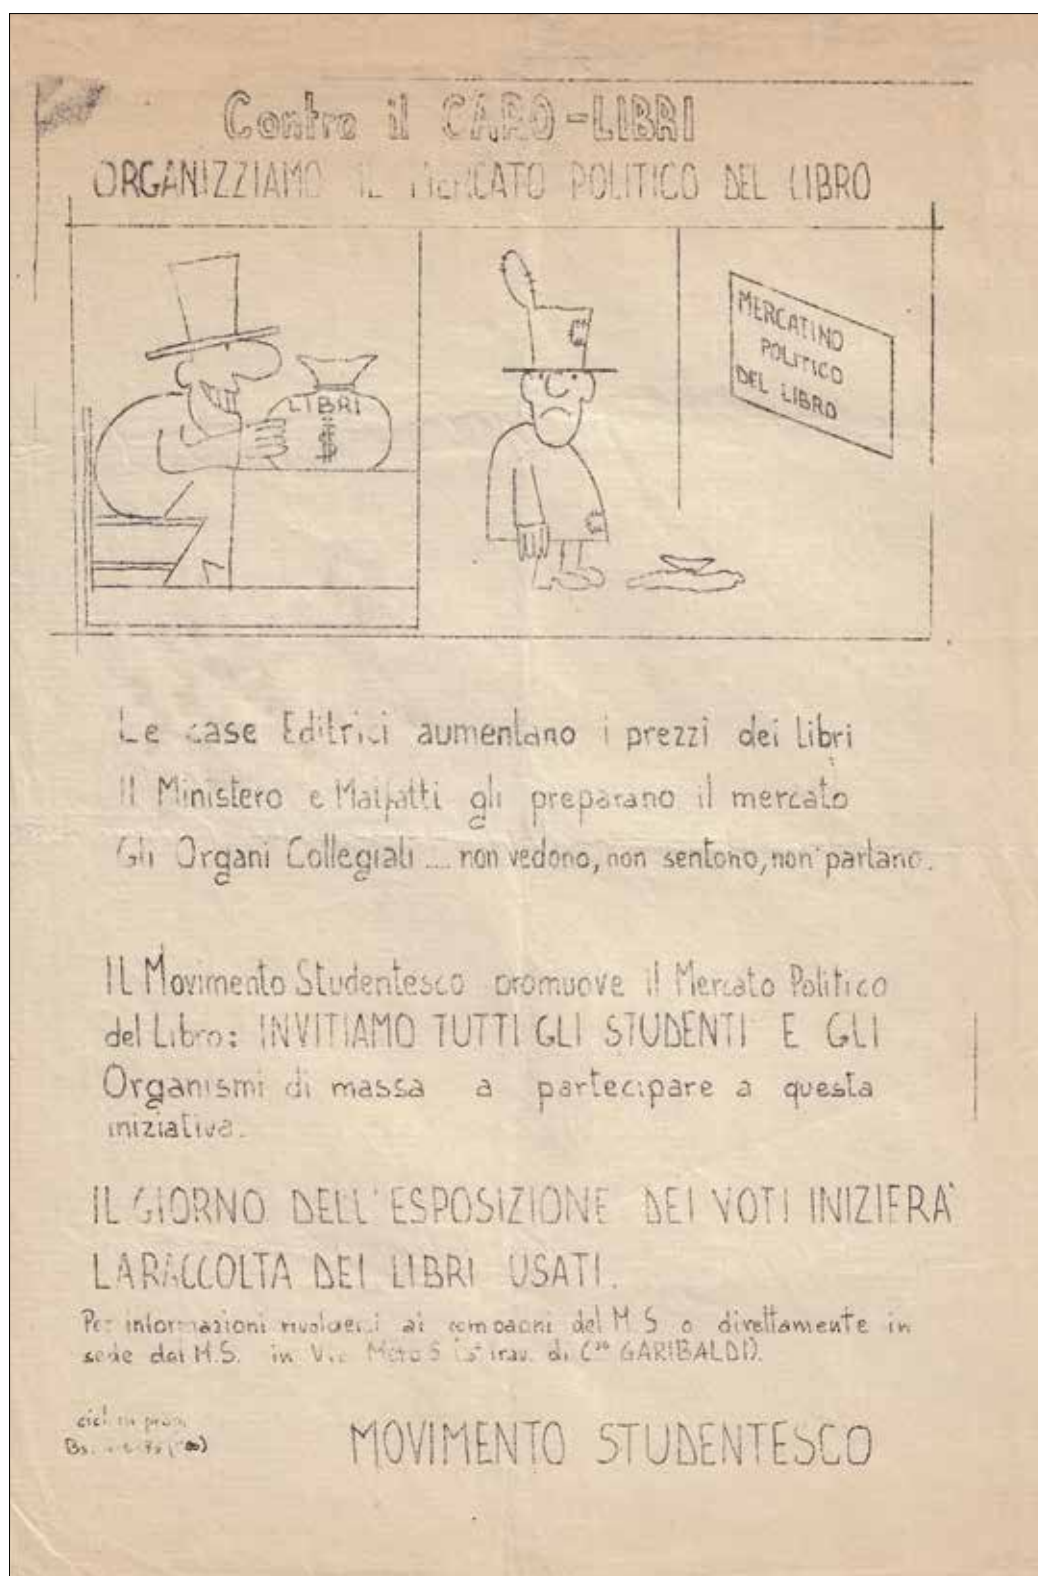 Contro il CARO-LIBRI
ORGANIZZIAMO IL MERCATO POLITICO DEL LIBRO
LIBRI
$
MERCATINO
POLITICO
DEL LIBRO
Le case Editrici aumentano i prezzi dei libri
Il Ministero e Malfatti gli preparano il mercato
Gli Organi Collegiali .... non vedono, non sentono, non parlano.
IL Movimento Studentesco promuove il Mercato Politico
del Libro: INVITIAMO TUTTI GLI STUDENTI E GLI
Organismi di massa a partecipare a questa
iniziativa.
IL GIORNO DELL'ESPOSIZIONE DEI VOTI INIZIERA'
LA RACCOLTA DEI LIBRI USATI.
Per informazioni rivolgersi ai compagni del M.S. o direttamente in
sede del M.S. in Via trav. di C.so GARIBALDI).
cicl. in prop.
Bs.
MOVIMENTO STUDENTESCO